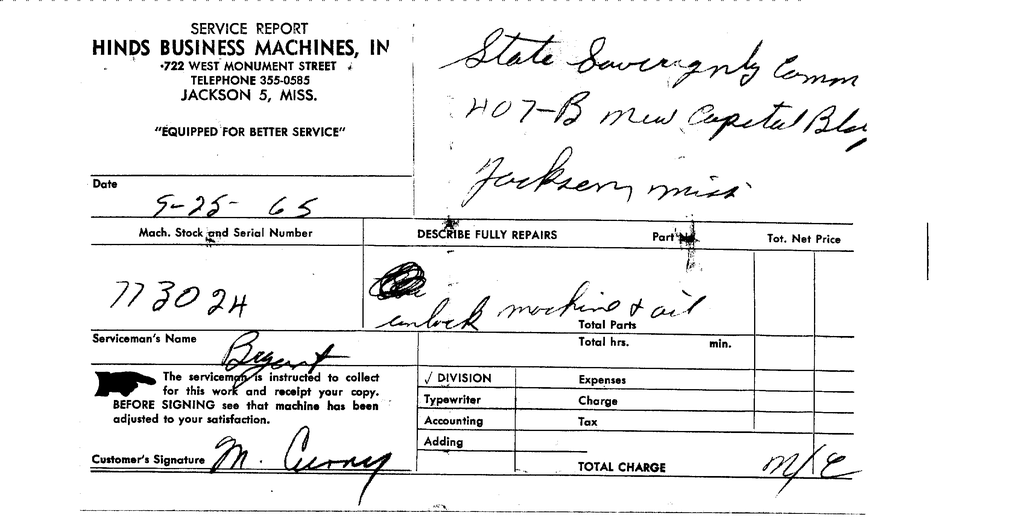 SERVICE REPORT
HINDS BUSINESS MACHINES, IN
722 WEST MONUMENT STREET
TELEPHONE 355-0585
JACKSON 5, MISS.
"EQUIPPED FOR BETTER SERVICE"
State Sovereignty Comm
407-B New Capital Bldg
Jackson, Miss
Date
9-25-65
Mach. Stock and Serial Number DESCRIBE FULLY REPAIRS Part No. Tot. Net Price
773024
unlock machine & oil
Total Parts
Serviceman's Name Bryant
Total hrs. min.
The serviceman is instructed to collect
for this work and receipt your copy.
BEFORE SIGNING see that machine has been
adjusted to your satisfaction.
√ DIVISION Expenses
Typewriter Charge
Accounting Tax
Adding
Customer's Signature M. Curry
TOTAL CHARGE N/C